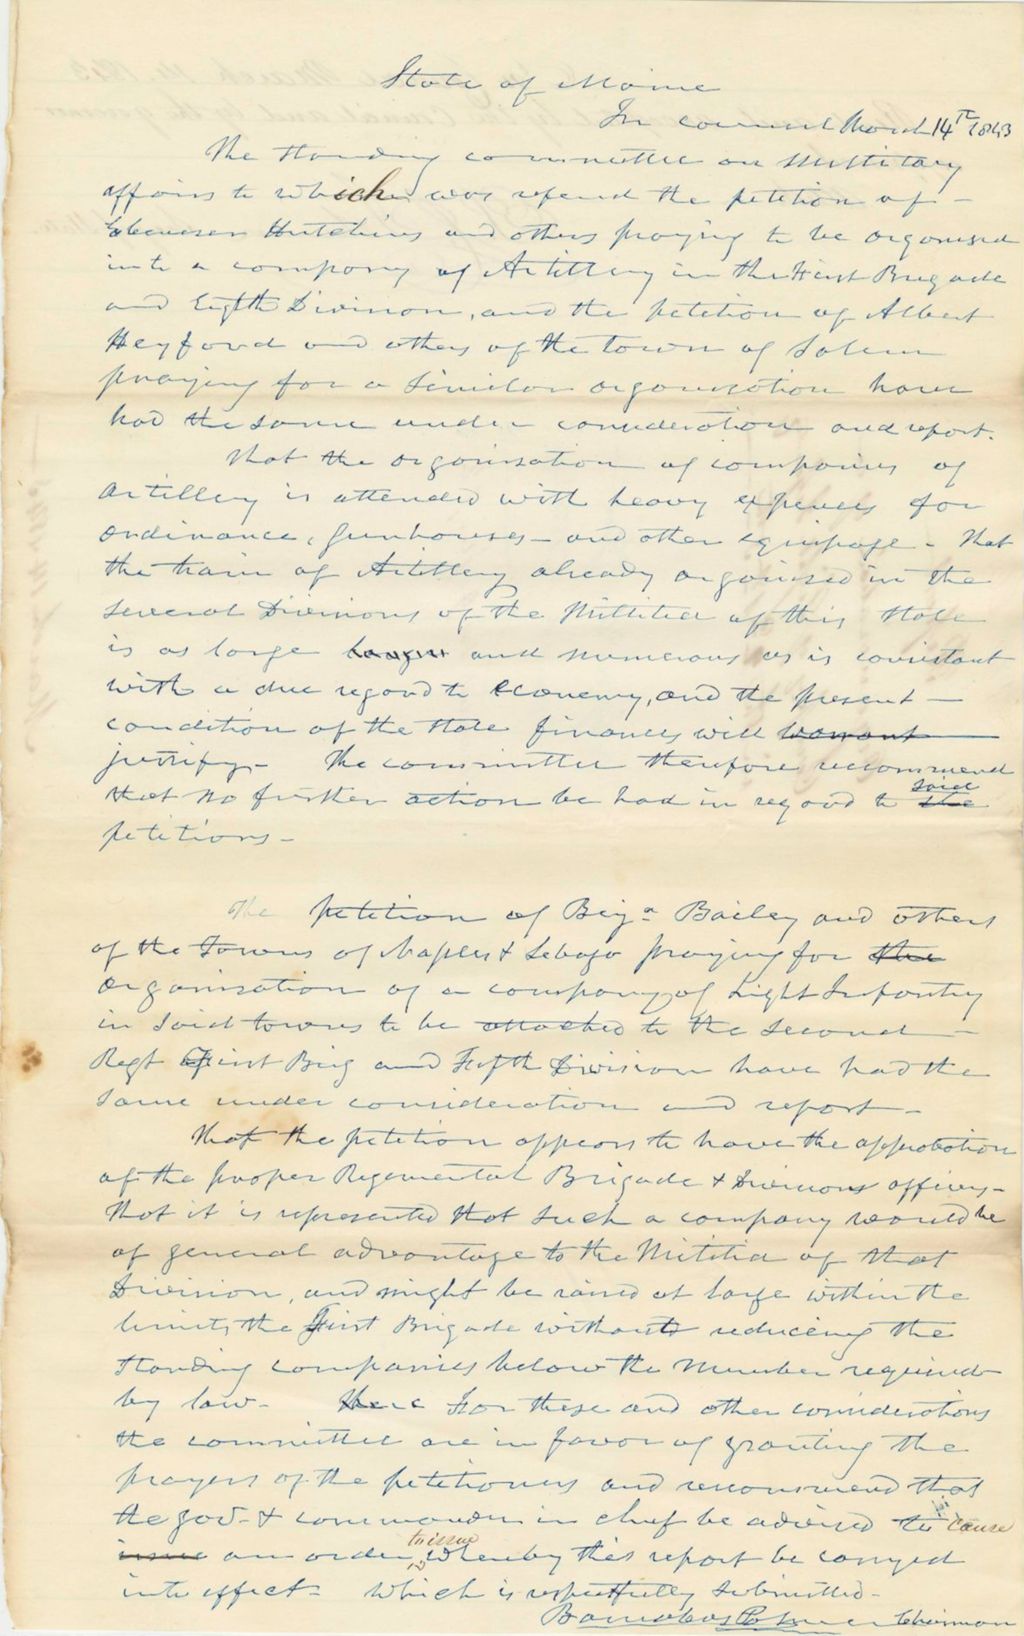 State of Maine
In council March 14th 1843
The Standing committee on Millitary
affairs to which was refered the petition of
Ebenezer Hutchins and others praying to be organised
into a company of Artillery in the First Brigade
and Eigth Division, and the petition of Albert
Heyford and others of the town of Salem
praying for a similar organisation have
had the same under consideration and report.
That the organisation of companies of
Artillery is attended with heavy expences for
ordinance, gunhouses - and other equipage - That
the train of Artillery already organised in the
several Divisions of the Millitia of this State
is as large and numerous as is consistant
with a due regard to economy, and the present
condition of the State finances will warrant
justify - The committee therefore recommend
that no further action be had in regard to the said
petitions -
The petition of Benja Bailey and others
of the Towns of Naples & Sebago praying for the
organisation of a company of Light Infantry
in said towns to be attached to the second
Regt First Brig and Fifth Division have had the
same under consideration and report -
That the petition appears to have the approbation
of the proper Regimental Brigade & Divisions officers -
That it is represented that such a company would be
of general advantage to the Militia of that
Division, and might be raised at large within the
limits the First Brigade without reducing the
standing companies below the number required
by law - For these and other considerations
the committee are in favor of granting the
prayers of the petitioners and recommend that
the gov. & commander in chief be advised to cause
issue an order to issue whereby this report be carryed
into effect - which is respectfully submitted -
Barnabas Palmer Chairman